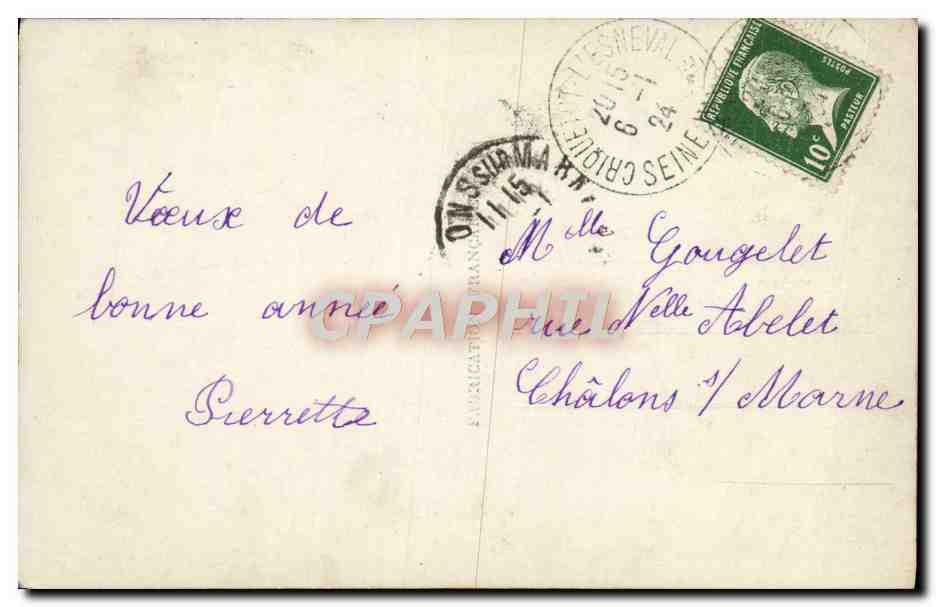 Vœux de
bonne année
Pierrette
Mlle Gougelet
rue Nelle Abelet
Châlons s/ Marne
RÉPUBLIQUE FRANÇAISE
POSTES
PASTEUR
10c
CRIQUETOT-L'ESNEVAL
SEINE
20 15
6 -1
24
ONS SUR MARN
11 15
FABRICATION FRANÇ
CPAPHIL